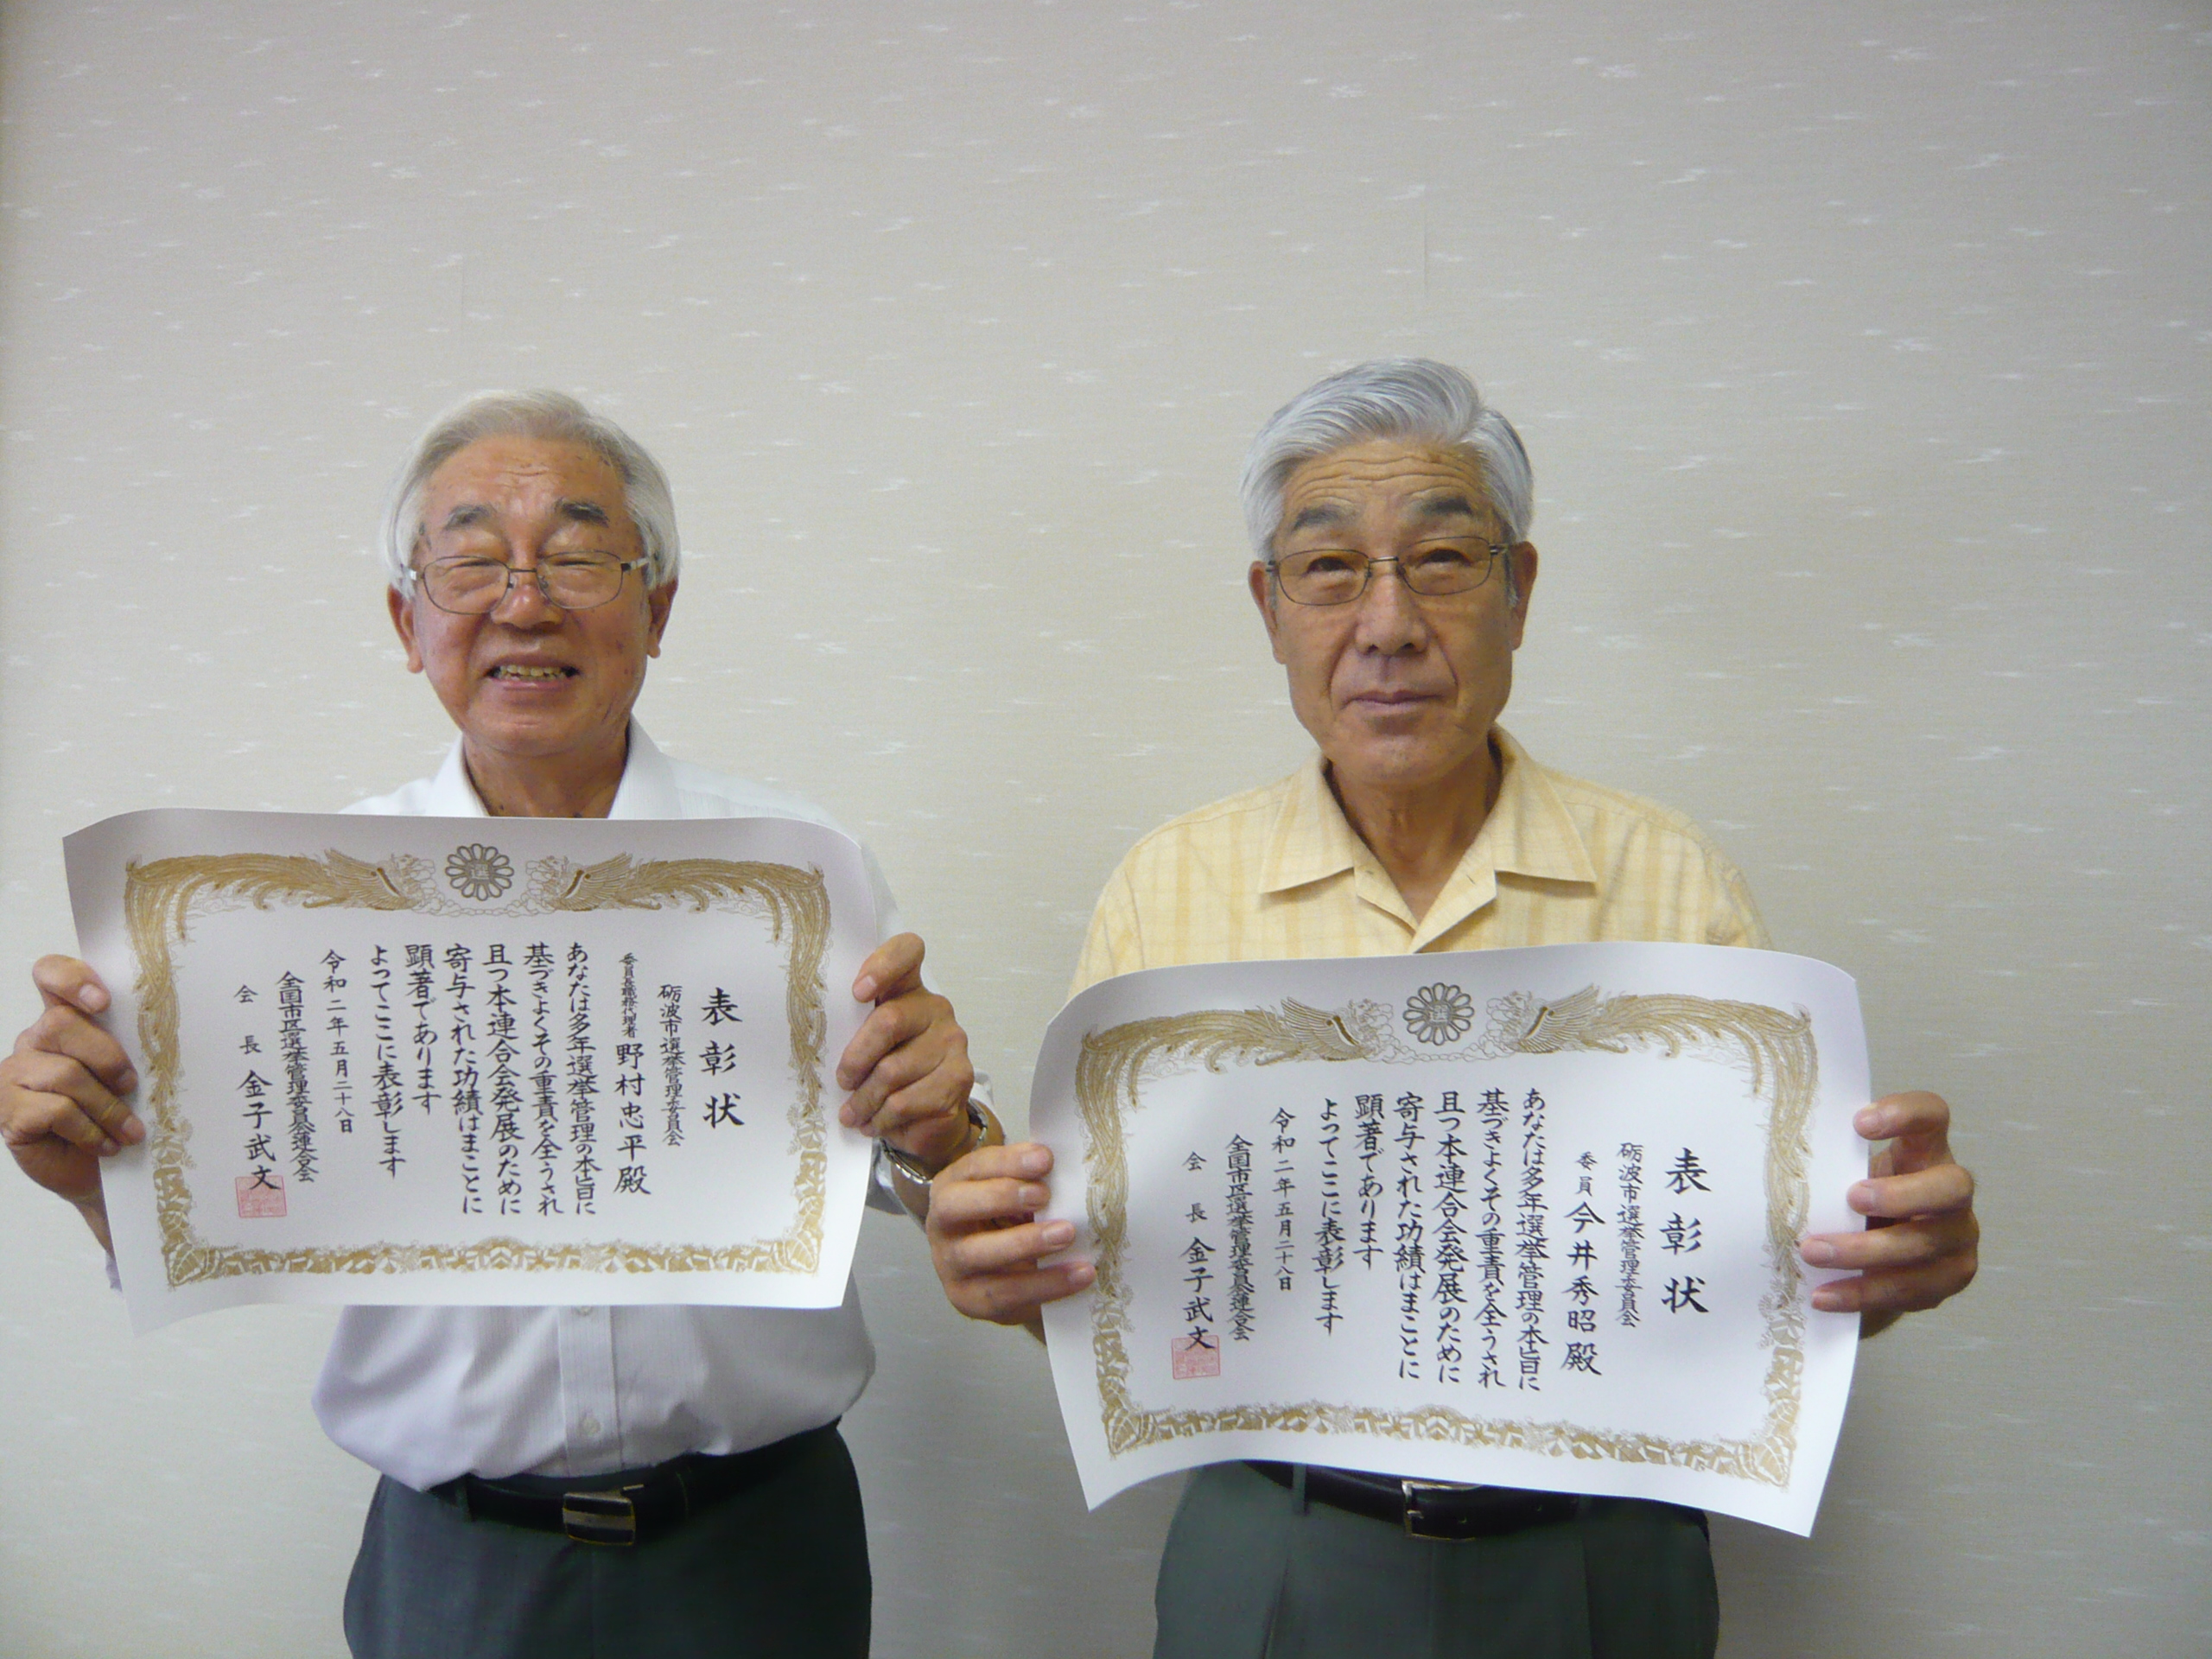 表彰状
砺波市選挙管理委員会
委員長職務代理者 野村忠平殿
あなたは多年選挙管理の本旨に
基づきよくその重責を全うされ
且つ本連合会発展のために
寄与された功績はまことに
顕著であります
よってここに表彰します
令和二年五月二十八日
全国市区選挙管理委員会連合会
会長 金子武文
表彰状
砺波市選挙管理委員会
委員 今井秀昭殿
あなたは多年選挙管理の本旨に
基づきよくその重責を全うされ
且つ本連合会発展のために
寄与された功績はまことに
顕著であります
よってここに表彰します
令和二年五月二十八日
全国市区選挙管理委員会連合会
会長 金子武文